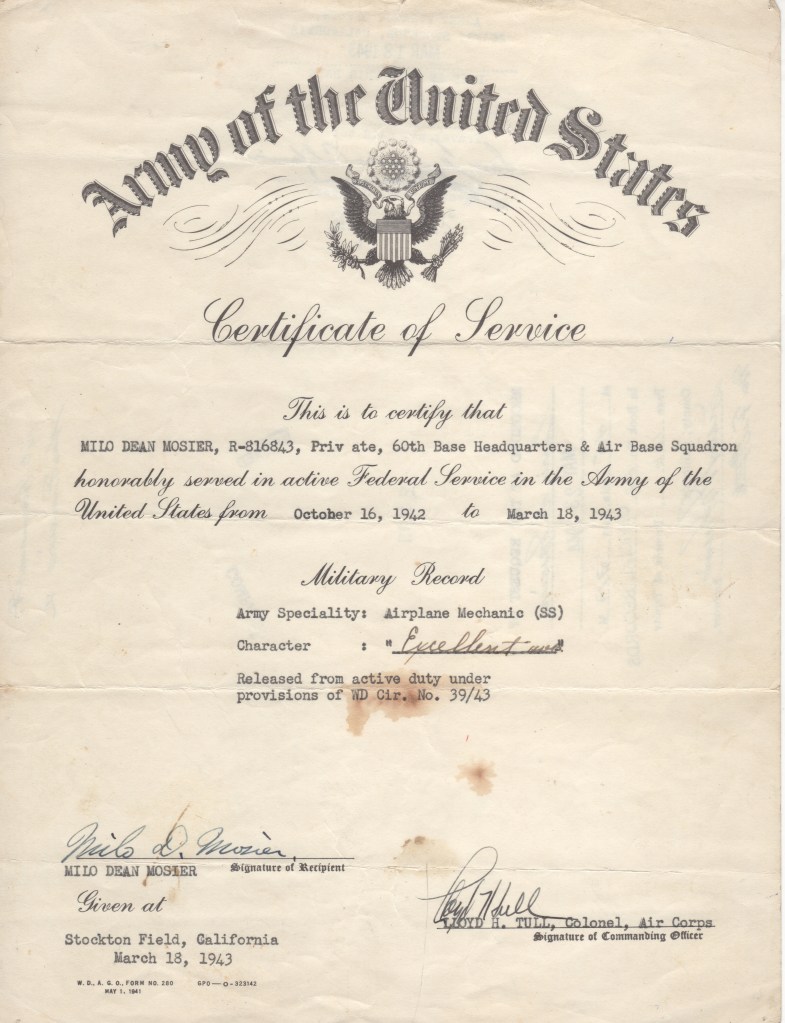 Army of the United States
Certificate of Service
This is to certify that
MILO DEAN MOSIER, R-816843, Priv ate, 60th Base Headquarters & Air Base Squadron
honorably served in active Federal Service in the Army of the
United States from October 16, 1942 to March 18, 1943
Military Record
Army Speciality: Airplane Mechanic (SS)
Character : " Excellent "
Released from active duty under
provisions of WD Cir. No. 39/43
Milo D. Mosier.
MILO DEAN MOSIER Signature of Recipient
Given at
Stockton Field, California
March 18, 1943
Loyd H Tull
LLOYD H. TULL, Colonel, Air Corps
Signature of Commanding Officer
W. D., A. G. O., FORM NO. 280 GPO—O-323142
MAY 1, 1941